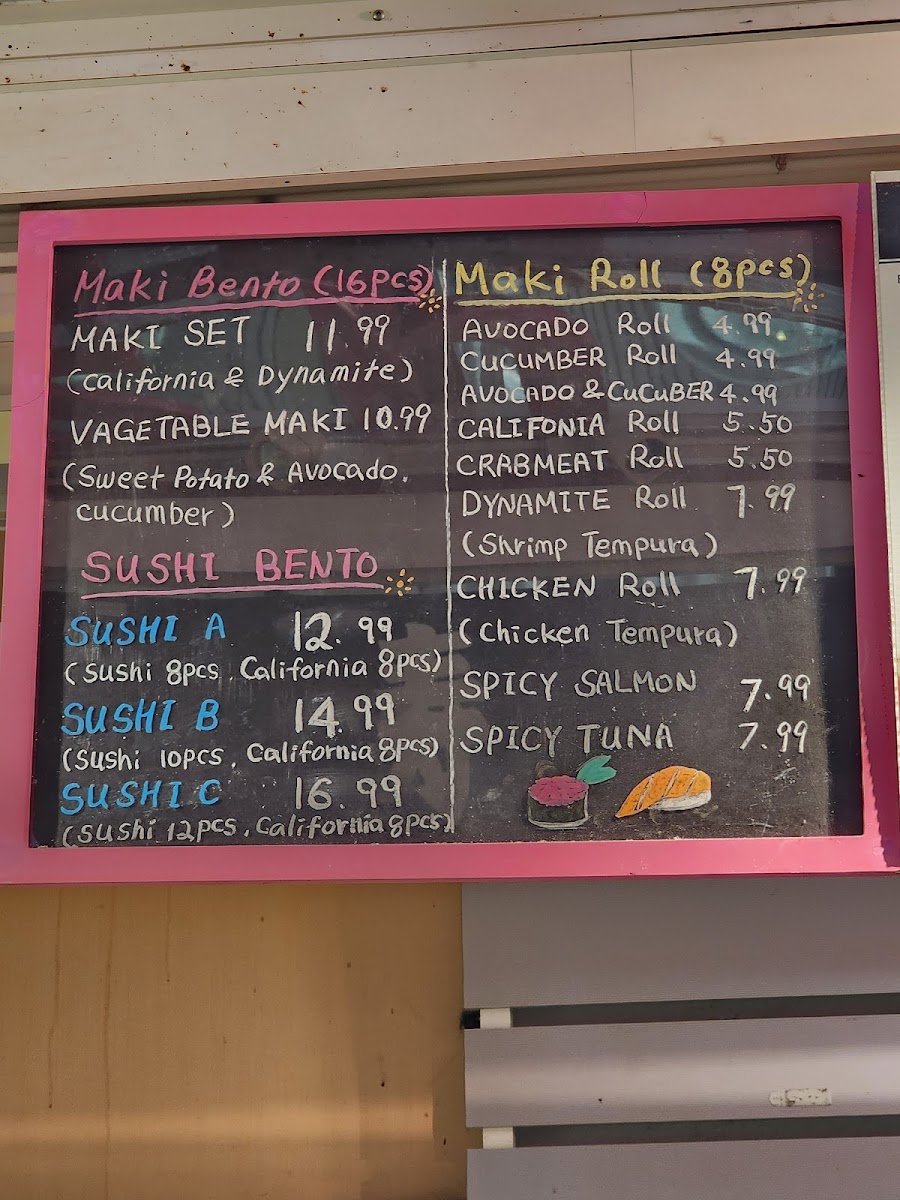 Maki Bento (16pcs)
MAKI SET 11.99
(California & Dynamite)
VAGETABLE MAKI 10.99
(Sweet Potato & Avocado.
cucumber)
SUSHI BENTO
SUSHI A 12.99
(Sushi 8pcs, California 8pcs)
SUSHI B 14.99
(Sushi 10pcs, California 8pcs)
SUSHI C 16.99
(Sushi 12pcs, California 8pcs)
Maki Roll (8pcs)
AVOCADO Roll 4.99
CUCUMBER Roll 4.99
AVOCADO & CUCUBER 4.99
CALIFONIA Roll 5.50
CRABMEAT Roll 5.50
DYNAMITE Roll 7.99
(Shrimp Tempura)
CHICKEN Roll 7.99
(Chicken Tempura)
SPICY SALMON 7.99
SPICY TUNA 7.99